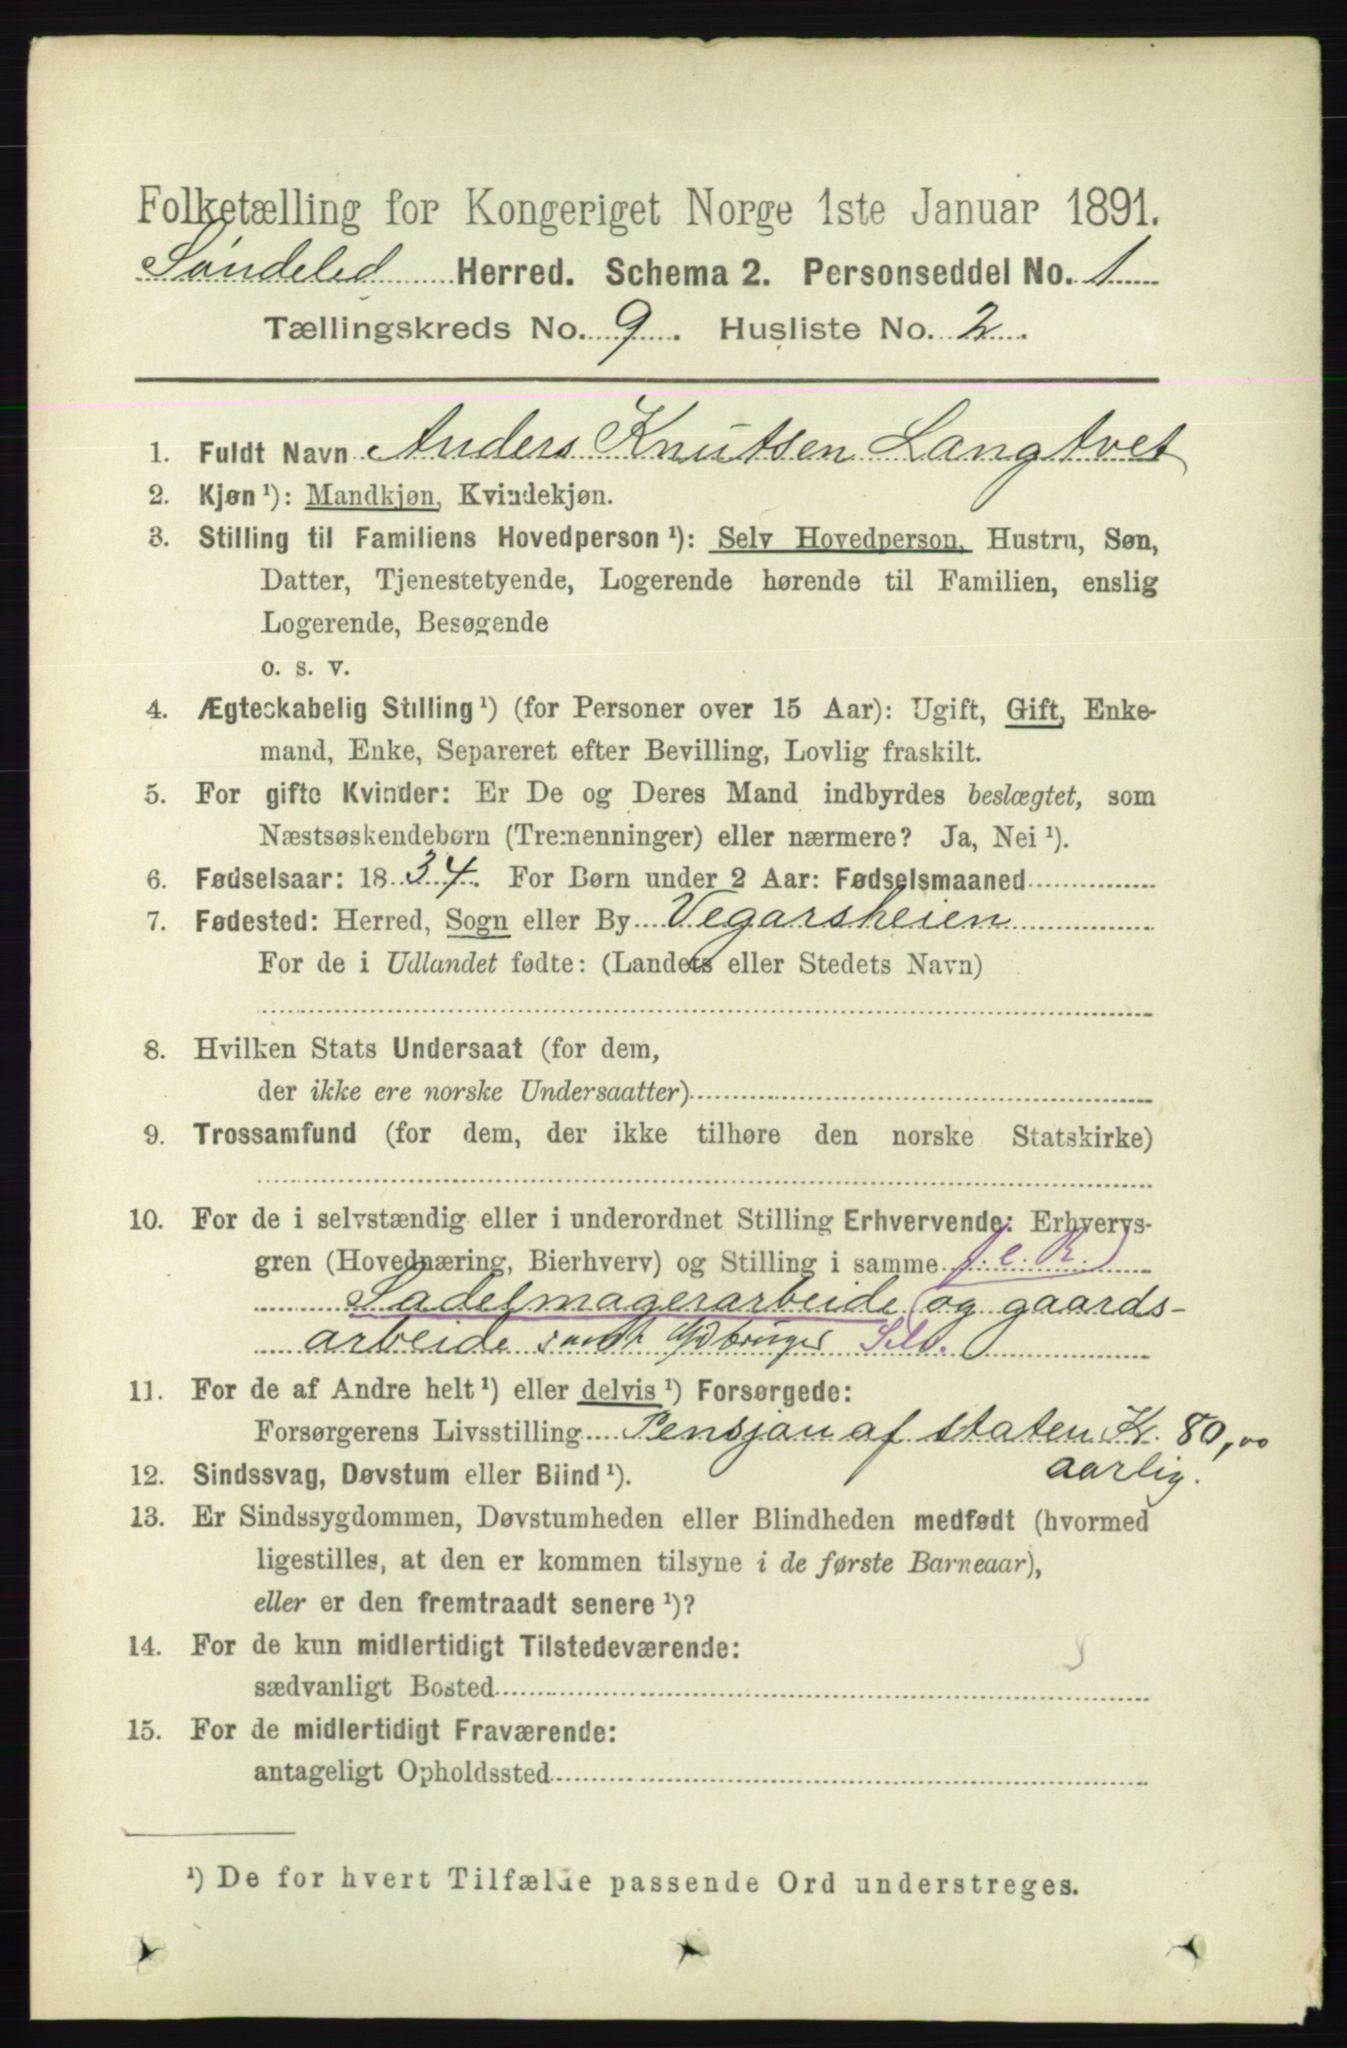 Folketælling for Kongeriget Norge 1ste Januar 1891.
Søndeled Herred. Schema 2. Personseddel No. 1
Tællingskreds No. 9. Husliste No. 2.
1. Fuldt Navn Anders Knutsen Langtvet
2. Kjøn ¹): Mandkjøn, Kvindekjøn.
3. Stilling til Familiens Hovedperson ¹): Selv Hovedperson, Hustru, Søn,
Datter, Tjenestetyende, Logerende hørende til Familien, enslig
Logerende, Besøgende
o. s. v.
4. Ægteskabelig Stilling ¹) (for Personer over 15 Aar): Ugift, Gift, Enke-
mand, Enke, Separeret efter Bevilling, Lovlig fraskilt.
5. For gifte Kvinder: Er De og Deres Mand indbyrdes beslægtet, som
Næstsøskendebørn (Tremenninger) eller nærmere? Ja, Nei ¹).
6. Fødselsaar: 1834. For Børn under 2 Aar: Fødselsmaaned
7. Fødested: Herred, Sogn eller By Vegarsheien
For de i Udlandet fødte: (Landets eller Stedets Navn)
8. Hvilken Stats Undersaat (for dem,
der ikke ere norske Undersaatter)
9. Trossamfund (for dem, der ikke tilhøre den norske Statskirke)
10. For de i selvstændig eller i underordnet Stilling Erhvervende: Erhvervs-
gren (Hovednæring, Bierhverv) og Stilling i samme
Sadelmagerarbeide og gaards-
arbeide samt Selv.
11. For de af Andre helt ¹) eller delvis ¹) Forsørgede:
Forsørgerens Livsstilling Pensjon af staten Kr. 80,00
aarlig.
12. Sindssvag, Døvstum eller Blind ¹).
13. Er Sindssygdommen, Døvstumheden eller Blindheden medfødt (hvormed
ligestilles, at den er kommen tilsyne i de første Barneaar),
eller er den fremtraadt senere ¹)?
14. For de kun midlertidigt Tilstedeværende:
sædvanligt Bosted
15. For de midlertidigt Fraværende:
antageligt Opholdssted
¹) De for hvert Tilfælde passende Ord understreges.